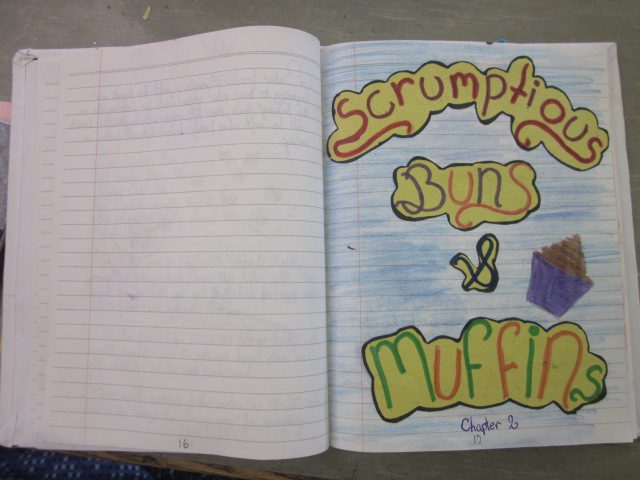 Scrumptious
Buns
&
Muffins
Chapter 2
16
17